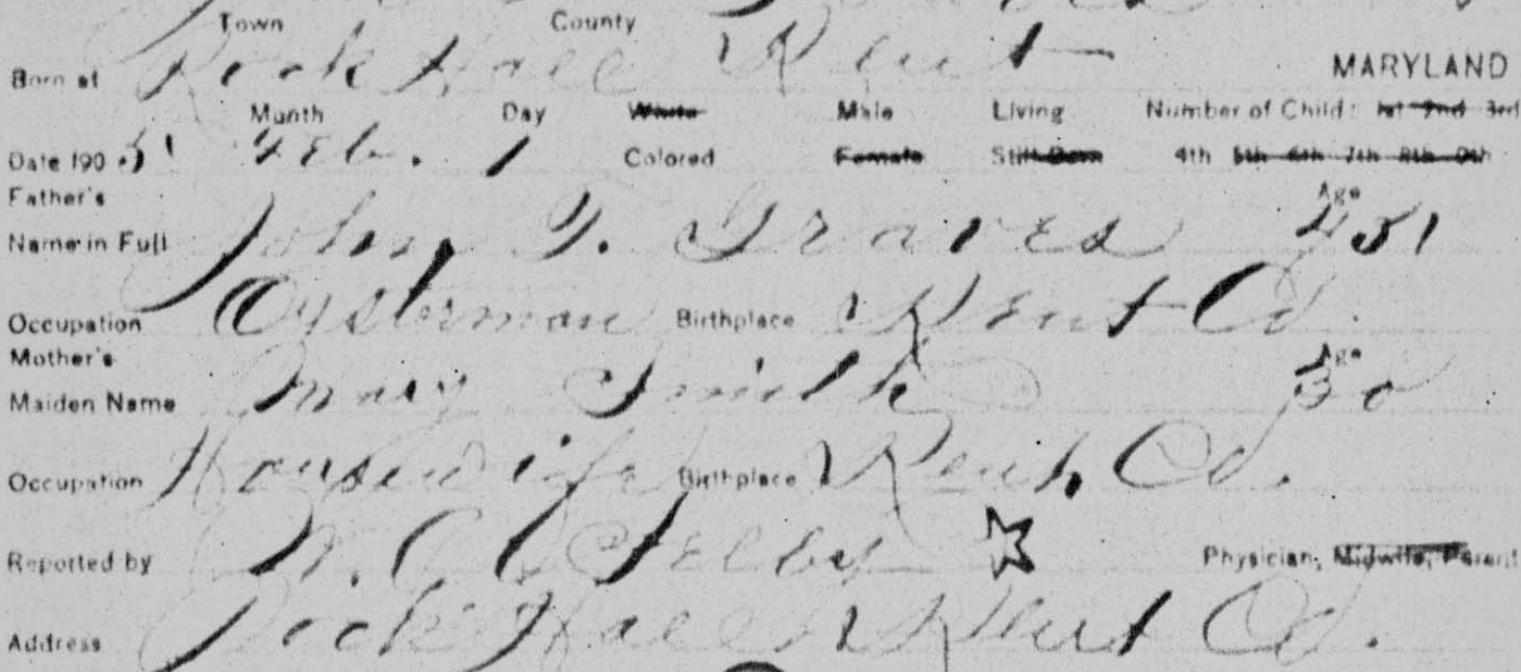 Town County
Born at Rock Hall Kent MARYLAND
Month Day White Male Living Number of Child: 1st 2nd 3rd
Date 1905 Feb. 1 Colored Female Still Born 4th 5th 6th 7th 8th 9th
Father's Age
Name in Full John T. Graves 45
Occupation Oysterman Birthplace Kent Co.
Mother's Age
Maiden Name Mary Smith 30
Occupation Housewife Birthplace Kent, Co.
Reported by Selby Physician, Midwife, Parent
Address Rock Hall Kent Co.